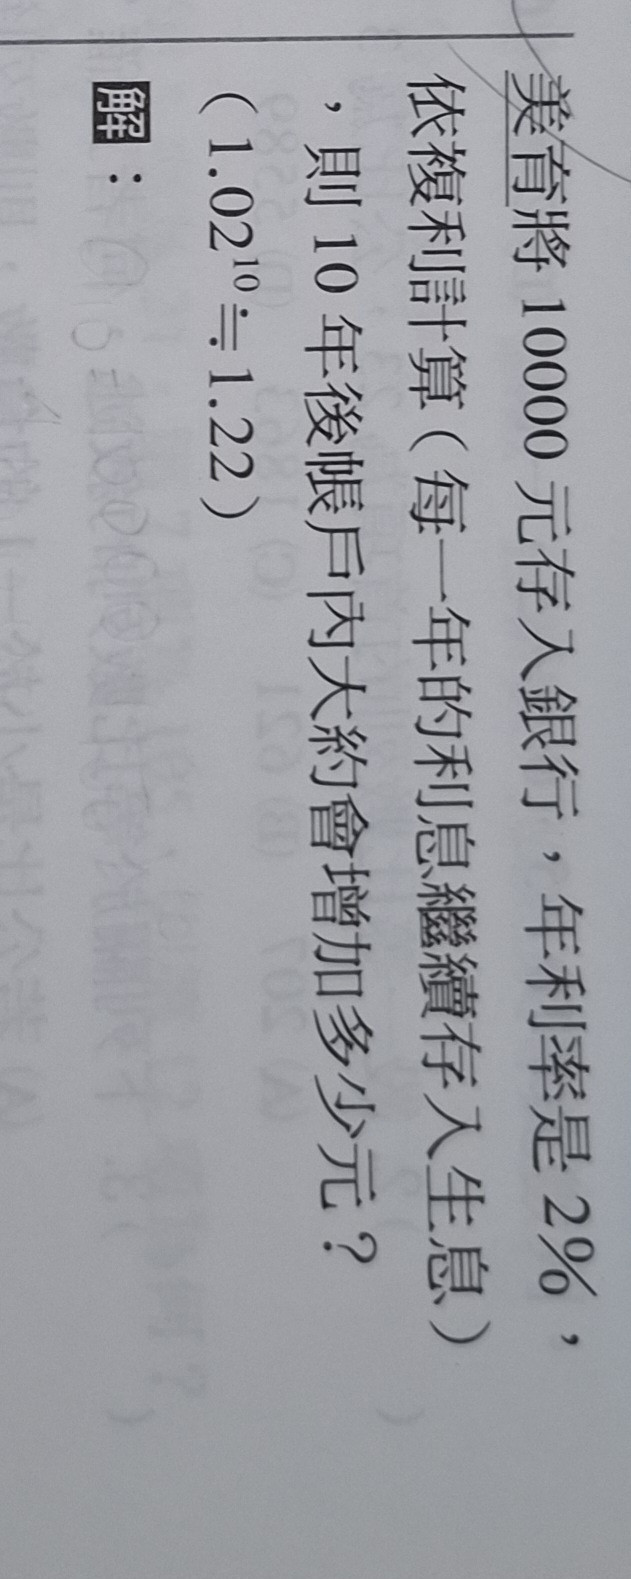 美育將 10000 元存入銀行，年利率是 2%，
依複利計算（每一年的利息繼續存入生息）
，則 10 年後帳戶內大約會增加多少元？
（1.02¹⁰≒1.22）
解：